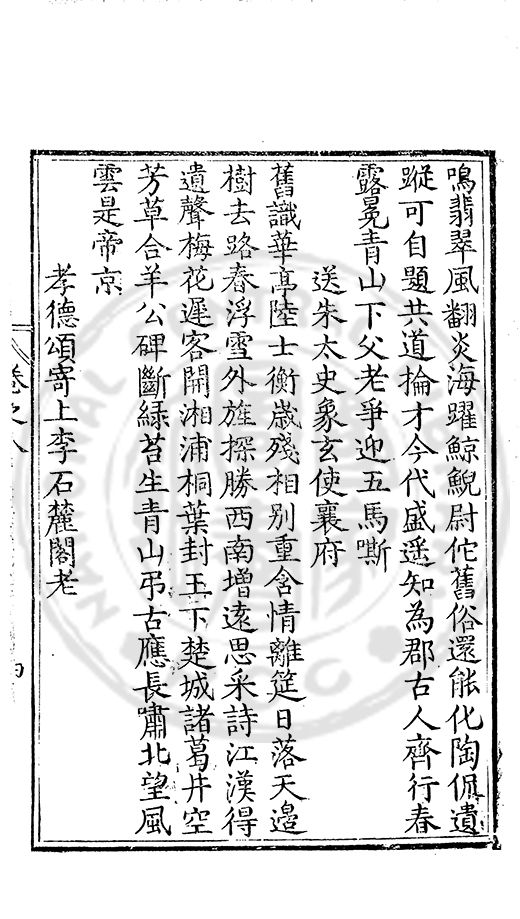 鳴翡翠風翻炎海躍鯨鯢尉佗舊俗還能化陶侃遺
蹤可自題共道掄才今代盛遥知為郡古人齊行春
露冕青山下父老爭迎五馬嘶
送朱太史象玄使襄府
舊識華亭陸士衡歲殘相别重含情離筵日落天邉
樹去路春浮雪外旌探勝西南增遠思采詩江漢得
遺聲梅花遲客開湘浦桐葉封王下楚城諸葛井空
芳草合羊公碑斷緑苔生青山弔古應長嘯北望風
雲是帝京
孝德頌寄上李石麓閣老
卷之八